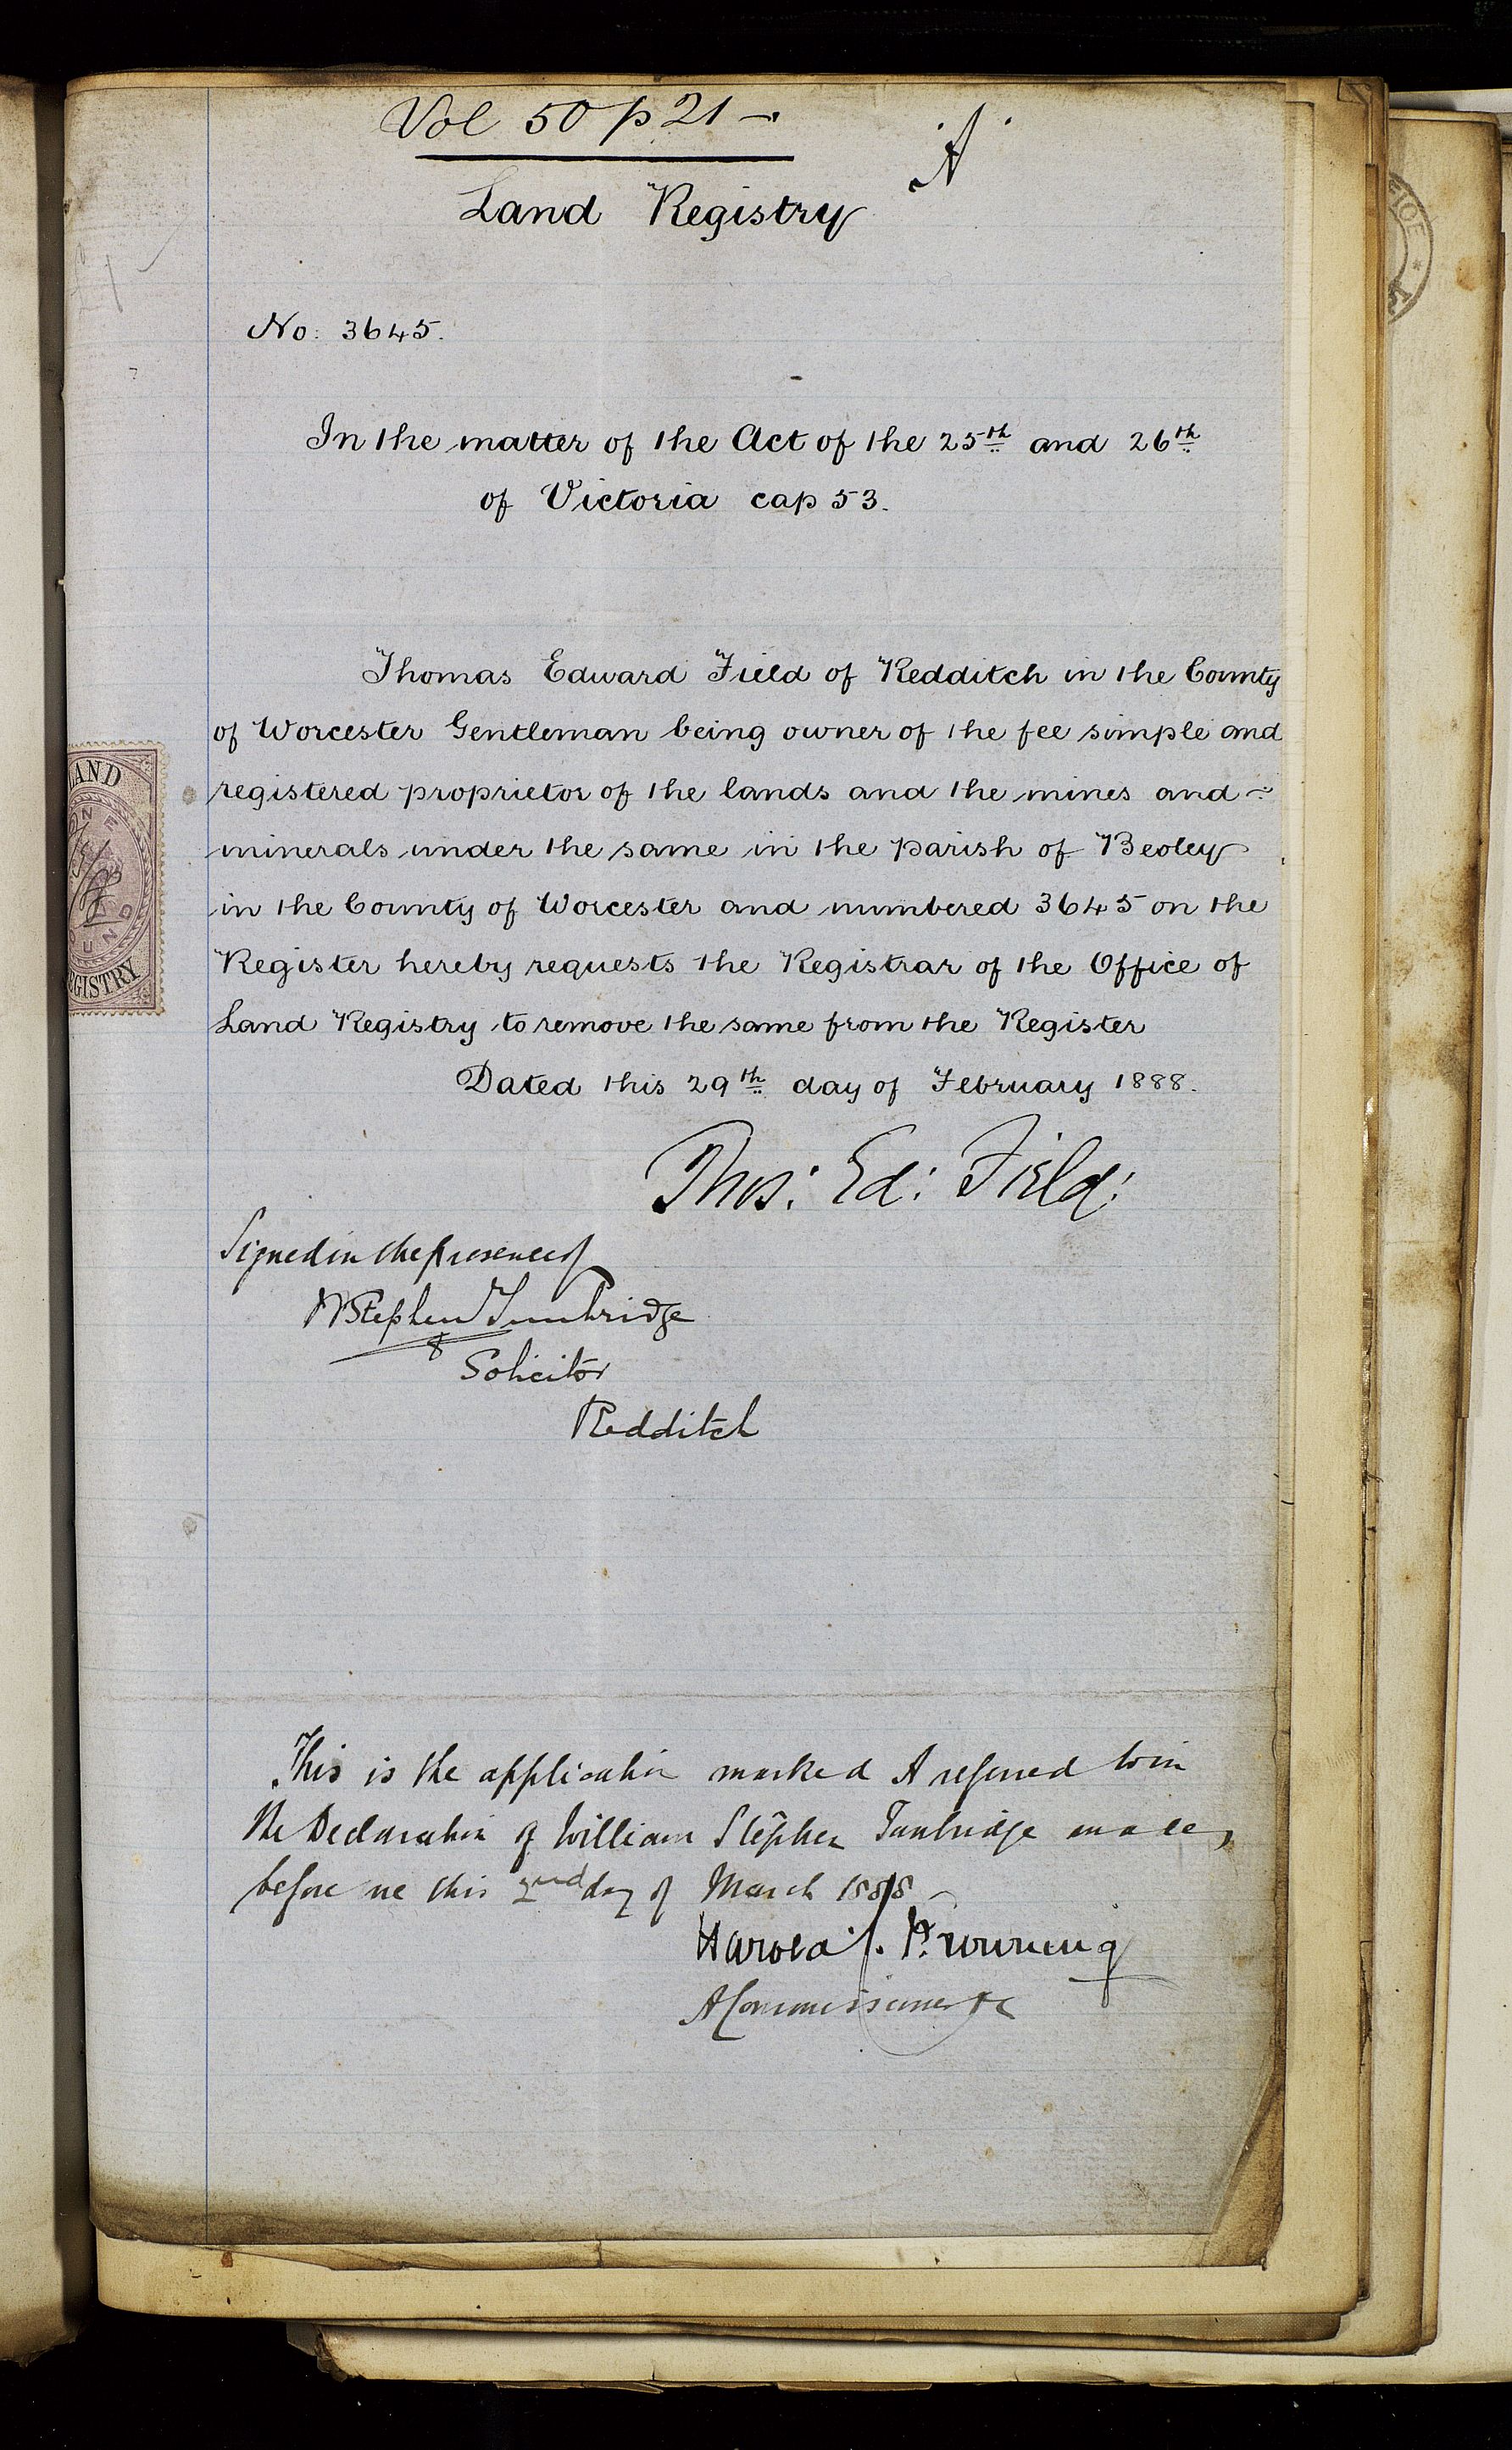 Vol 50 p 21 -
"A"
Land Registry
No: 3645.
In the matter of the Act of the 25th and 26th
of Victoria cap 53.
Thomas Edward Field of Redditch in the County
of Worcester Gentleman being owner of the fee simple and
registered proprietor of the lands and the mines and
minerals under the same in the parish of Beoley
in the County of Worcester and numbered 3645 on the
Register hereby requests the Registrar of the Office of
Land Registry to remove the same from the Register
Dated this 29th day of February 1888.
Thos: Ed: Field:
Signed in the presence of
W Stephen Tunbridge
Solicitor
Redditch
LAND
REGISTRY
This is the application marked A referred to in
the Declaration of William Stephen Tunbridge made
before me this 2nd day of March 1888
Harold J. Browning
A Commissioner &c